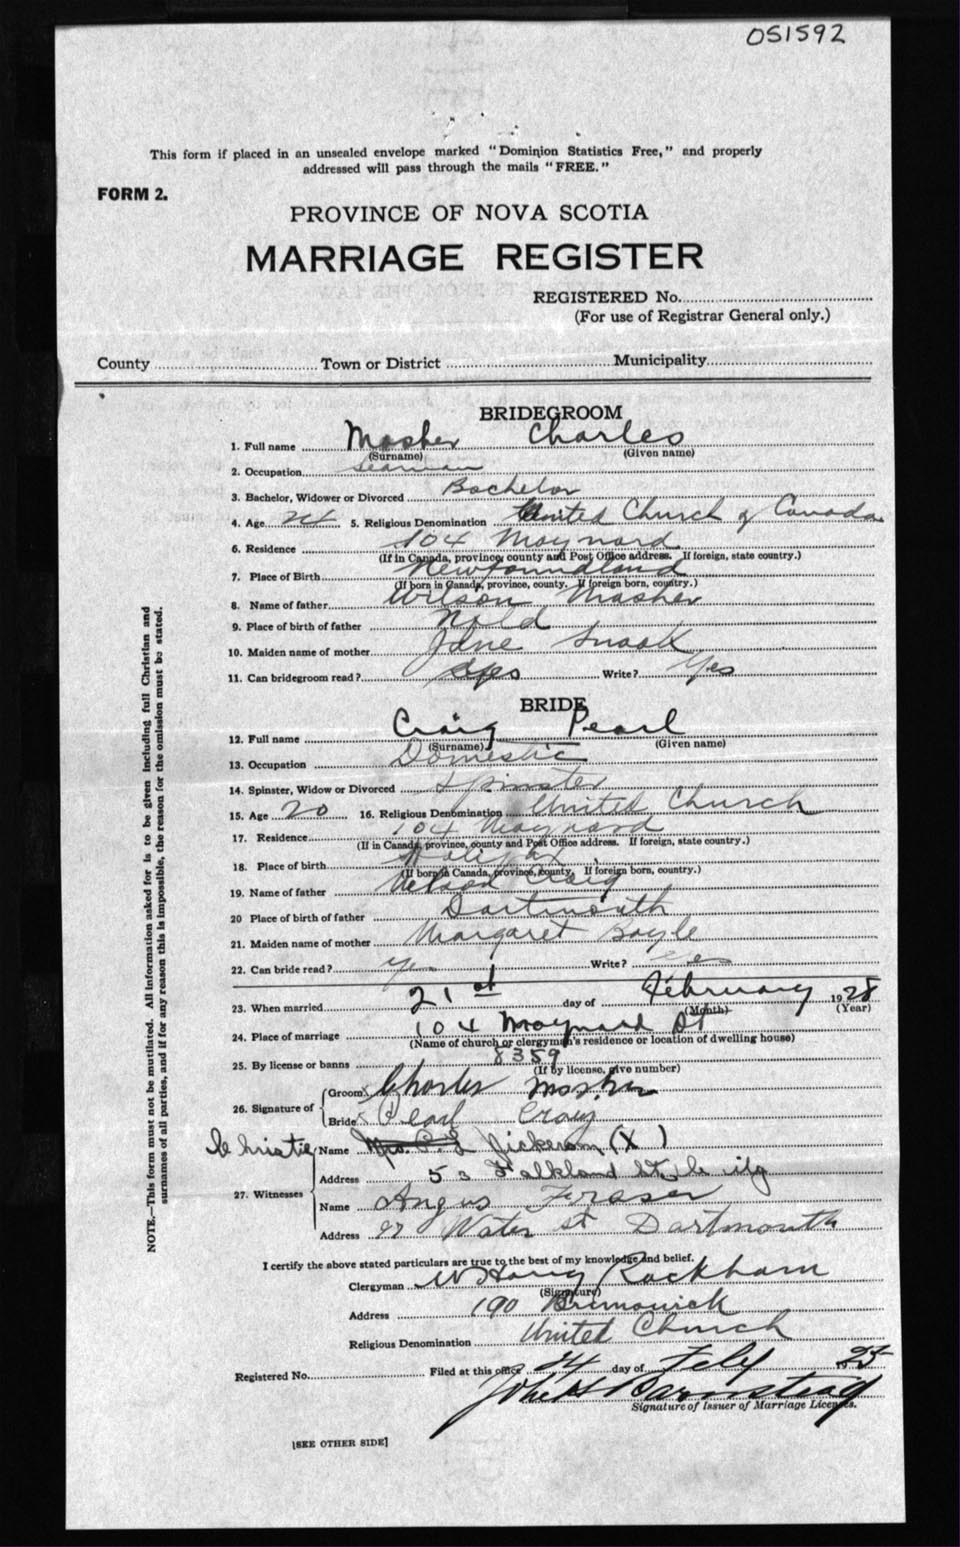 051592
This form if placed in an unsealed envelope marked "Dominion Statistics Free," and properly
addressed will pass through the mails "FREE."
FORM 2.
PROVINCE OF NOVA SCOTIA
MARRIAGE REGISTER
REGISTERED No.
(For use of Registrar General only.)
County Town or District Municipality
BRIDEGROOM
1. Full name Mosher Charles
(Surname) (Given name)
2. Occupation Seaman
3. Bachelor, Widower or Divorced Bachelor
4. Age 24 5. Religious Denomination United Church of Canada
6. Residence 104 Maynard
(If in Canada, province, county and Post Office address. If foreign, state country.)
7. Place of Birth Newfoundland
(If born in Canada, province, county. If foreign born, country.)
8. Name of father Wilson Mosher
9. Place of birth of father Nfld
10. Maiden name of mother Jane Snook
11. Can bridegroom read? yes Write? Yes
BRIDE
12. Full name Craig Pearl
(Surname) (Given name)
13. Occupation Domestic
14. Spinster, Widow or Divorced Spinster
15. Age 20 16. Religious Denomination United Church
17. Residence 104 Maynard
(If in Canada, province, county and Post Office address. If foreign, state country.)
18. Place of birth Halifax
(If born in Canada, province, county. If foreign born, country.)
19. Name of father Nelson Craig
20 Place of birth of father Dartmouth
21. Maiden name of mother Margaret Boyle
22. Can bride read? Yes Write? Yes
23. When married 21st day of February 1928
(Month) (Year)
24. Place of marriage 104 Maynard St
(Name of church or clergyman's residence or location of dwelling house)
25. By license or banns 8359
(If by license, give number)
26. Signature of
Groom X Charles Mosher
Bride X Pearl Craig
27. Witnesses
Christie Name Mrs. C. L Jickeram (X)
Address 53 Falkland St. City
Name Angus Fraser
Address Water St Dartmouth
I certify the above stated particulars are true to the best of my knowledge and belief.
Clergyman W Harry Rackham
(Signature)
Address 190 Brunswick
Religious Denomination United Church
Registered No. Filed at this office 24 day of Feby 19
John H Barnstead
Signature of Issuer of Marriage Licenses.
[SEE OTHER SIDE]
NOTE.—This form must not be mutilated. All information asked for is to be given including full Christian and
surnames of all parties, and if for any reason this is impossible, the reason for the omission must be stated.